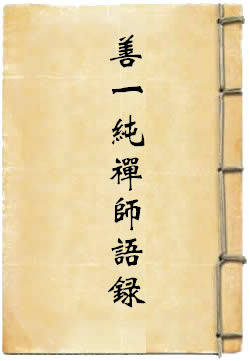 善一純禪師語録